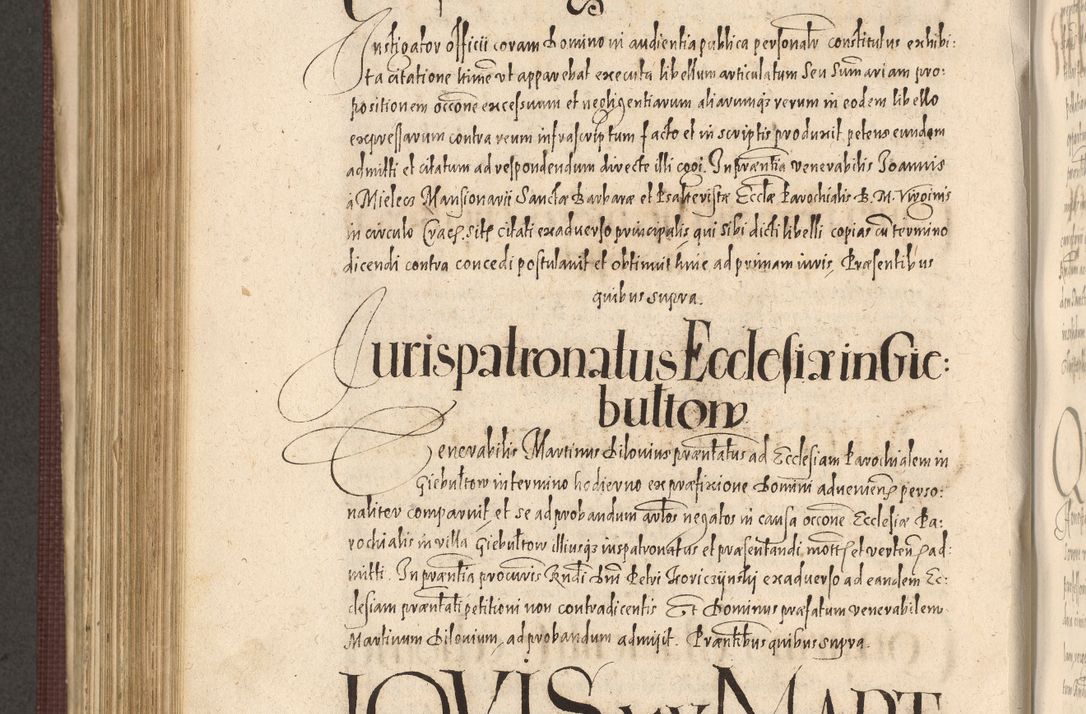 Instigator Officii coram Domino in audientia publica personalr constitutus exhibi:
ta citatione hinc ut apparebat executa libellum articulatum seu summariam pro:
positionem occone excessuum et negligentiarum aliarumqz rerum in eodem libello
expressarum contra reum infrascriptum facto et in scriptis produxit petens eundem
admitti et citatum ad respondendum directe illi cogi. In præntia venerabilis Joannis
a Mielecz Mansionarii Sanctæ Barbaræ et Psalteristæ Ecclæ Parochialis B. M. Virginis
in circulo Crac. sitæ citati exadverso principalis qui sibi dicti libelli copias cu termino
dicendi contra concedi postulavit et obtinuit hinc ad primam iuris. Præsentibus
quibus supra.
Jurispatronatus Ecclesiæ in Gie:
bułtow
Venerabilis Martinus Silovius præntatus ad Ecclesiam Parochialem in
Giebułtow in termino hodierno ex præfixione Domini advenien perso:
naliter comparuit et se ad probandum arlos negatos in causa occone Ecclesiæ Pa:
rochialis in villa Giebułtow illiusqz iurispatronatus et præsentandi mott et verten ad:
mitti. In præntia procuris Rndi Dni Petri Goriczynski exadverso ad eandem Ec:
clesiam præntati petitioni non contradicentis Et Dominus præfatum venerabilem
Martinum Silovium, ad probandum admisit. Præntibus quibus supra.
JOVIS XIV MART